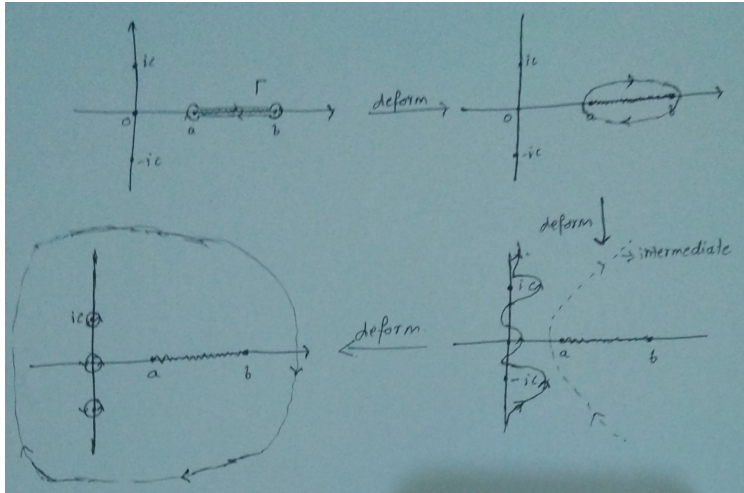 ic
Γ
o
a
b
-ic
deform
ic
o
a
b
-ic
deform
intermediate
ic
a
b
-ic
deform
ic
a
b